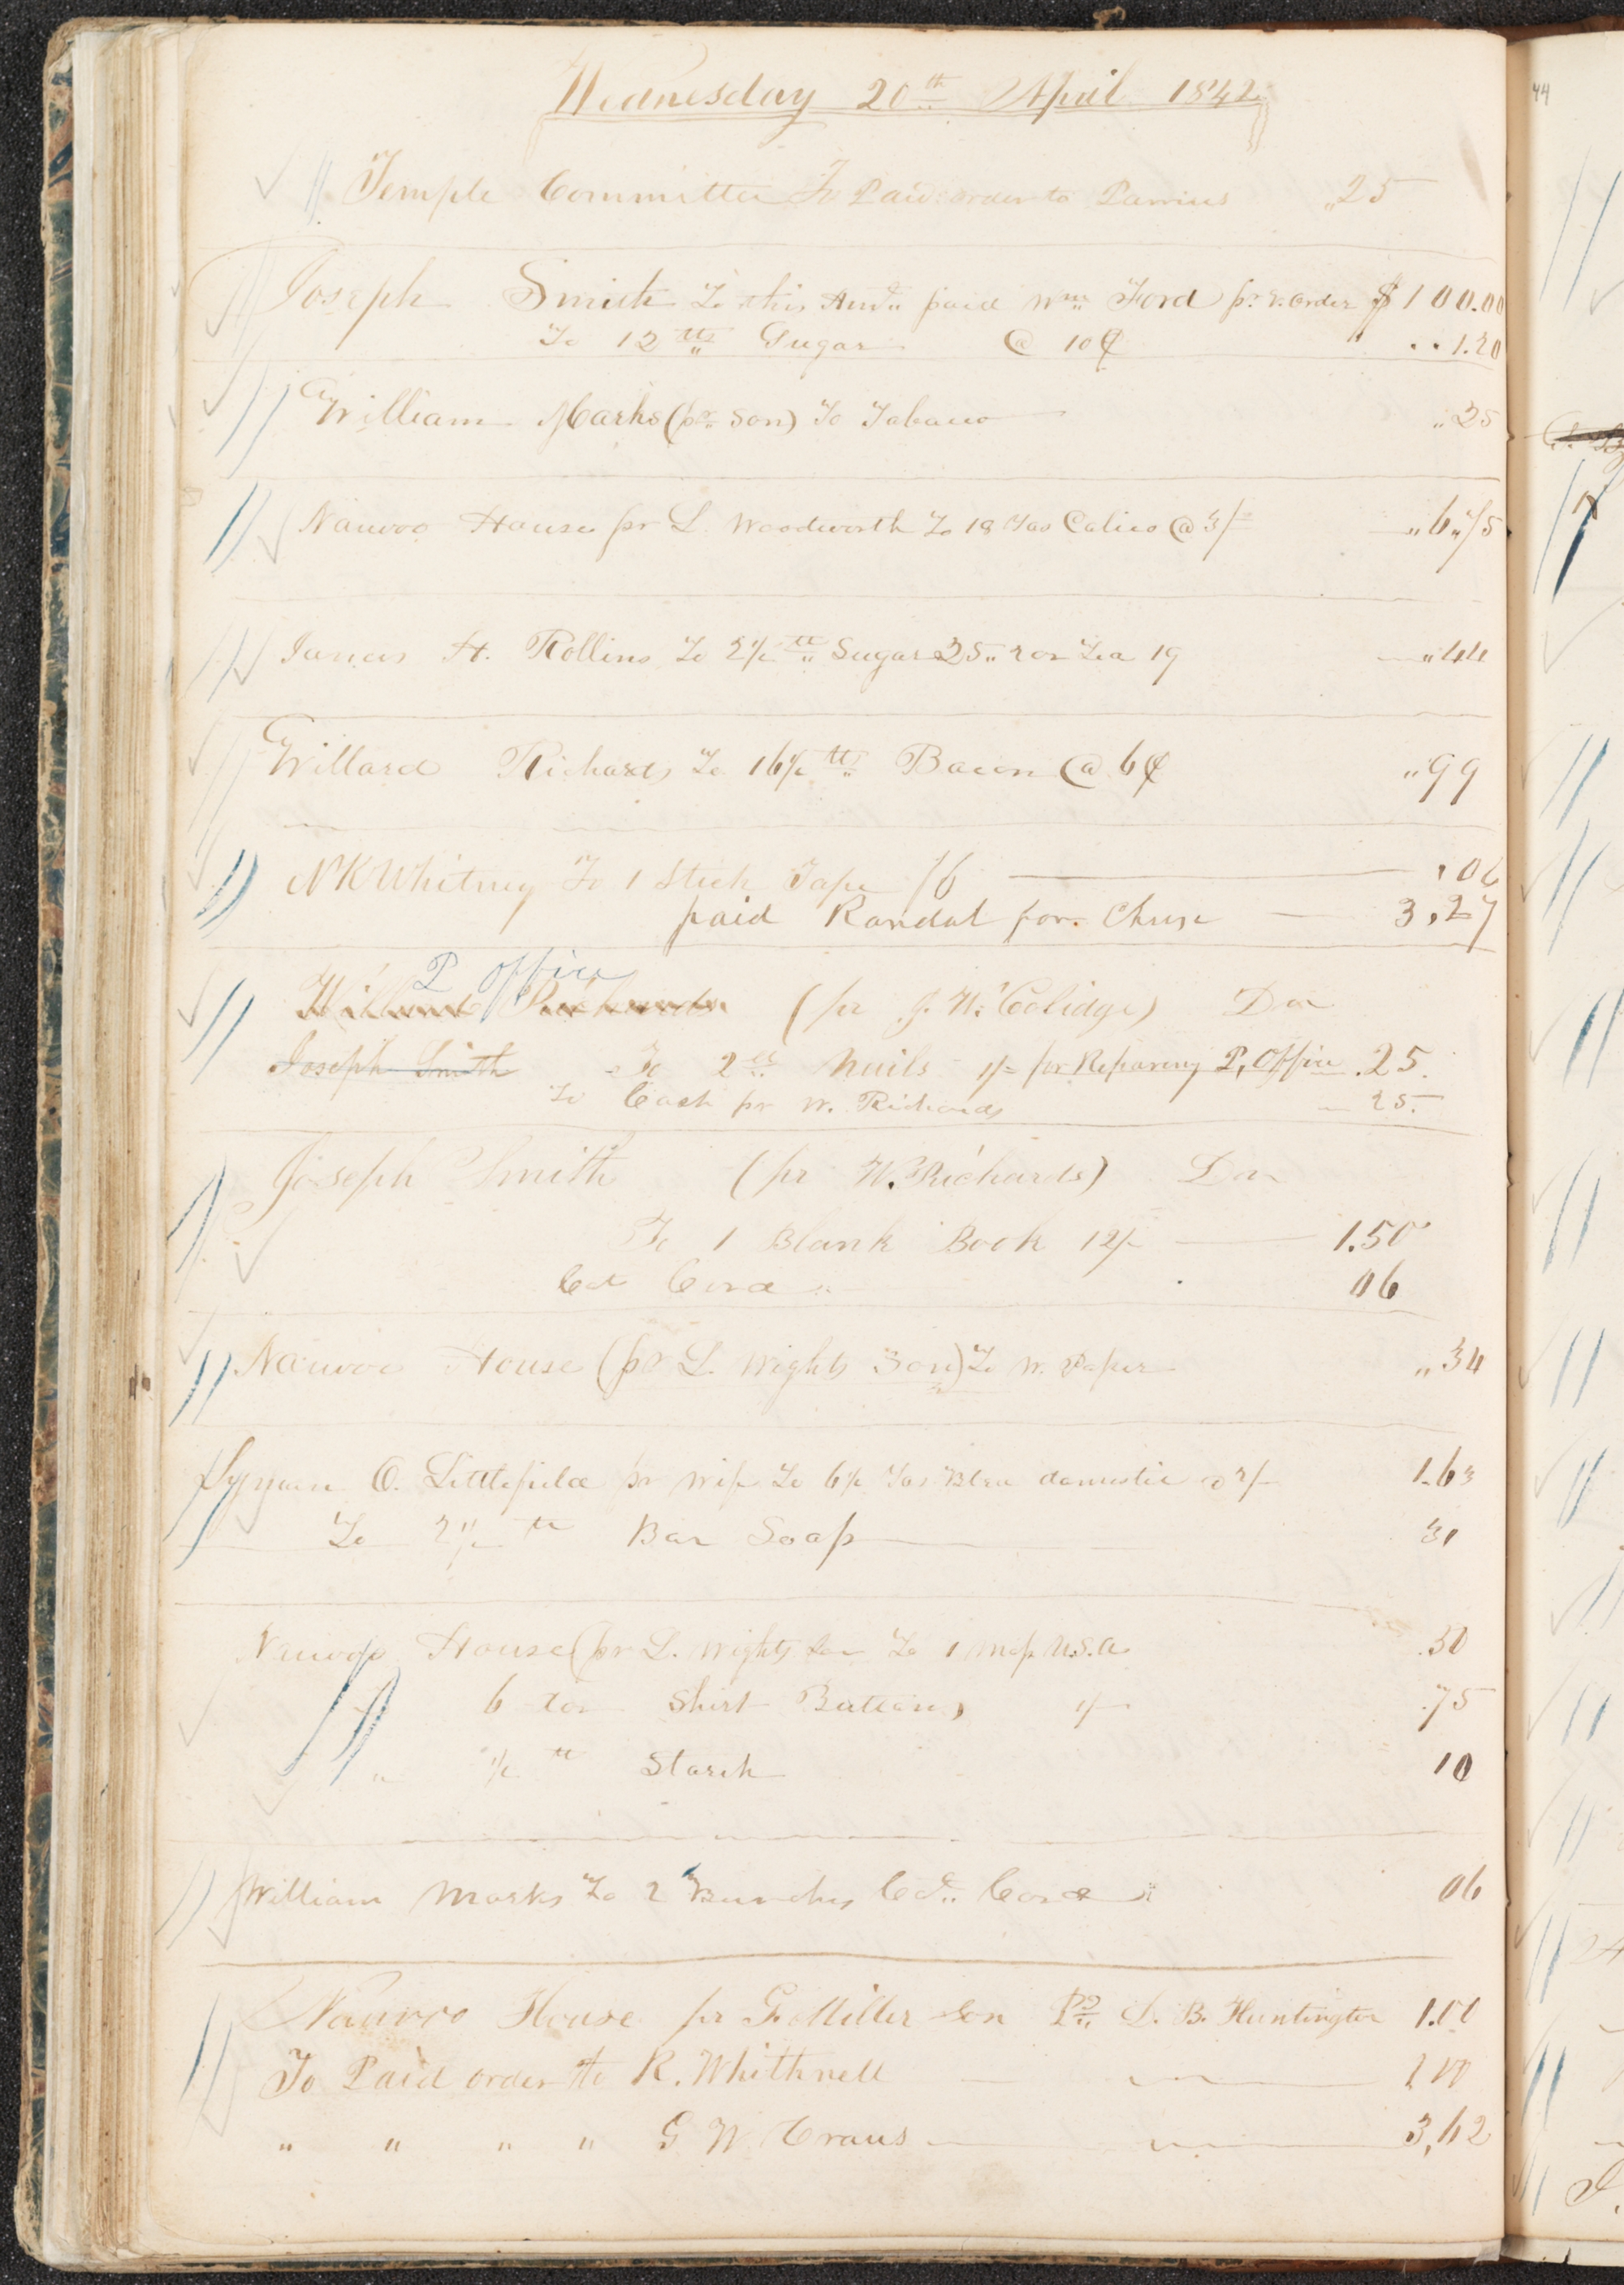 Wednesday 20th April 1842
Temple Committee To Paid order to „25
Joseph Smith To this Amt. paid Wm Ford pr. order $100.00
To 12 lbs Sugar @ 10¢ 1.20
William Marks (pr Son) To Tobacco „25
Nauvoo House pr L. Woodworth To 18 Yds Calico @ 3/- „6„75
James H. Rollins To 2½ lb Sugar 25„ 2 oz Tea 19 „44
Willard Richards To 16½ lbs Bacon @ 6¢ „99
N K Whitney To 1 Stick Tape /6 .06
paid Randal for 3,27
P office
Willard Richards (pr J. W. Coolidge) Dr
Joseph Smith To 2 lbs Nails 1/- for Reparing P, Office .25.
To Cash pr W. Richards 25.
Joseph Smith (pr W. Richards) Dr
To 1 Blank Book 12/- 1.50
Cd Cord 06
Nauvoo House (pr L. Wights Son) To W. Paper „34
Lyman O. Littlefield pr wife To 6½ Yds Blea domestic @ 2/- 1.63
To 2½ lb Bar Soap 31
Nauvoo House (pr L. Wights Son To 1 Map U.S.A. .50
6 doz Shirt Buttons 1/- .75
„ ½ lb Starch 10
William Marks To 2 Bunches Cd.. Cord 06
Nauvoo House pr G. Miller Son Pd L. B. Huntington 1.00
To Paid order to R. Whithnell
„ „ „ „ G W 3,62
44